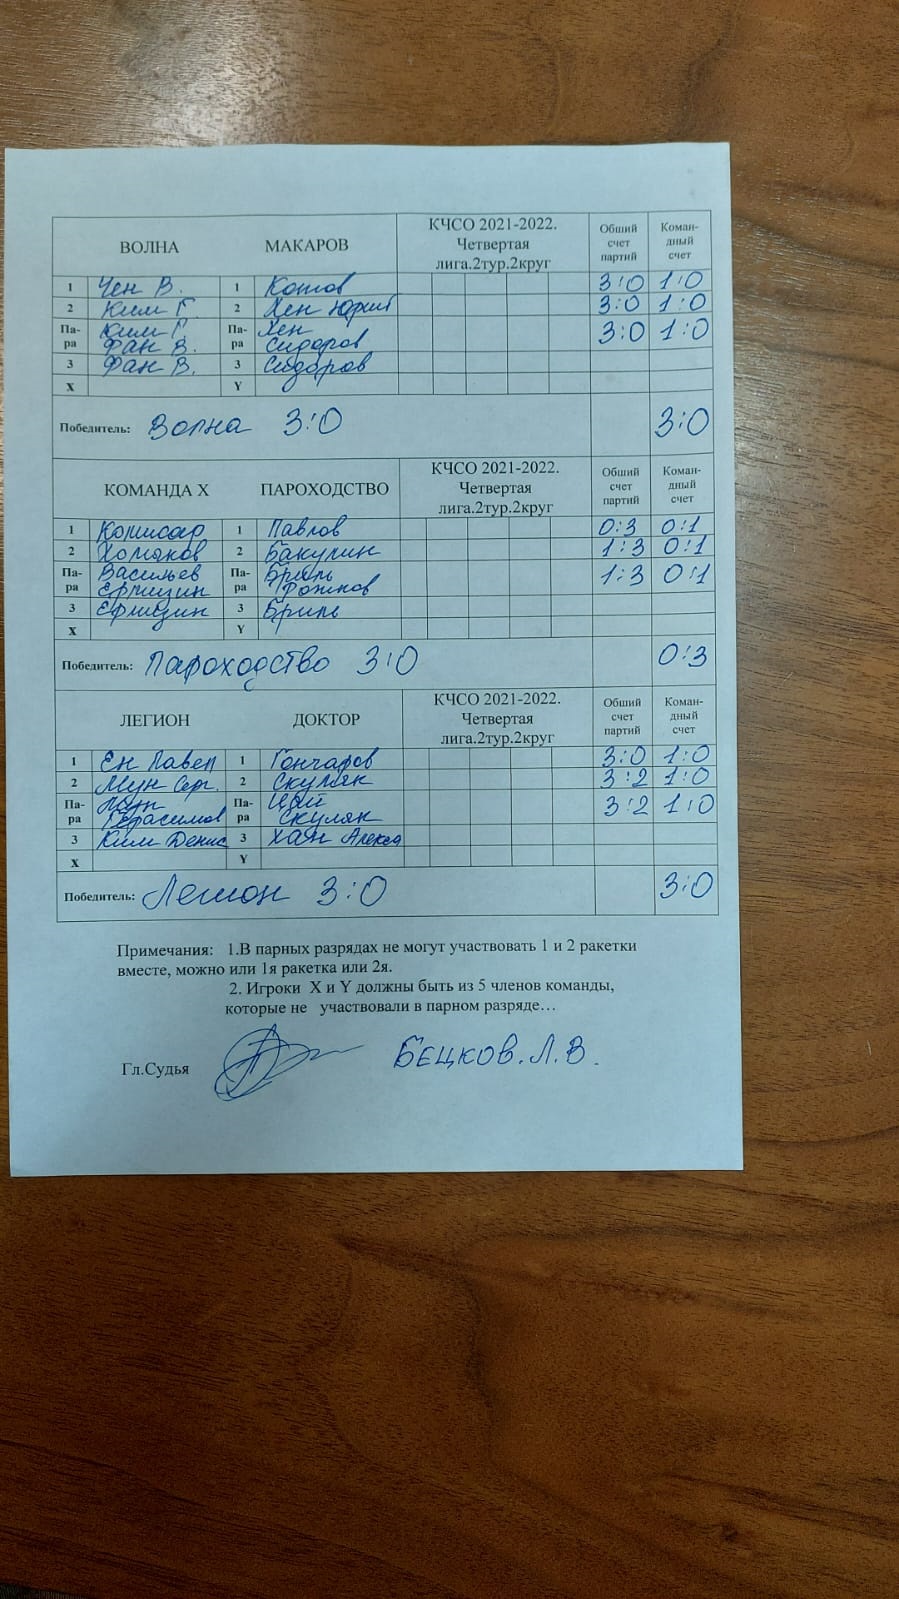 ВОЛНА МАКАРОВ КЧСО 2021-2022. Четвертая лига.2тур.2круг Общий счет партий Коман-дный счет
1 Чен В. 1 Котов 3:0 1:0
2 Ким Г. 2 Хен Юрий 3:0 1:0
Па-ра Ким Г. Па-ра Хен 3:0 1:0
Фан В. Сидоров
3 Фан В. 3 Сидоров
X Y
Победитель: Волна 3:0 3:0
КОМАНДА X ПАРОХОДСТВО КЧСО 2021-2022. Четвертая лига.2тур.2круг Общий счет партий Коман-дный счет
1 Комисар 1 Павлов 0:3 0:1
2 Хомяков 2 Бакулин 1:3 0:1
Па-ра Васильев Па-ра Бриль 1:3 0:1
Ефмизин Фотиков
3 Ефмизин 3 Бриль
X Y
Победитель: Пароходство 3:0 0:3
ЛЕГИОН ДОКТОР КЧСО 2021-2022. Четвертая лига.2тур.2круг Общий счет партий Коман-дный счет
1 Ен Павел 1 Гончаров 3:0 1:0
2 Мун Серг. 2 Скуляк 3:2 1:0
Па-ра Па-ра Цой 3:2 1:0
Герасимов Скуляк
3 Ким Денис 3 Хан Алекса
X Y
Победитель: Легион 3:0 3:0
Примечания: 1.В парных разрядах не могут участвовать 1 и 2 ракетки
вместе, можно или 1я ракетка или 2я.
2. Игроки X и Y должны быть из 5 членов команды,
которые не участвовали в парном разряде…
Гл.Судья Бецков.Л.В.